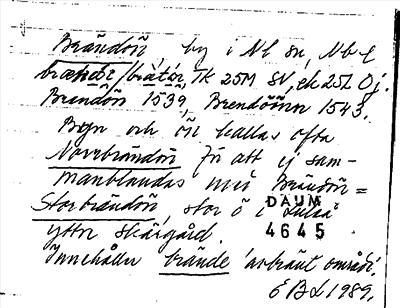 Brändön, by i Nl sn, Nb l
TK 25M SV, ek 25L 0j.
Brendön 1539, Brendöönn 1543.
Byn och ön kallas ofta
Norrbrändön för att ej sam-
manblandas med Brändön =
Storbrändön, stor ö i Luleå
DAUM
4645
yttre skärgård.
Innehåller brände 'avbränt område'.
EBL 1989.